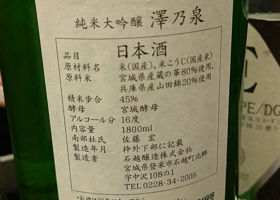 純米大吟醸 澤乃泉
品目 日本酒
原材料名 米(国産)、米こうじ(国産米)
原料米 宮城県産蔵の華80%使用、
兵庫県産山田錦20%使用
精米歩合 45%
酵母 宮城酵母
アルコール分 16度
内容量 1800ml
南部杜氏 佐藤 宏
製造年月 枠外下部に記載
製造者 石越醸造株式会社
宮城県登米市石越町北郷
字中沢108の1
TEL.0228-34-2005